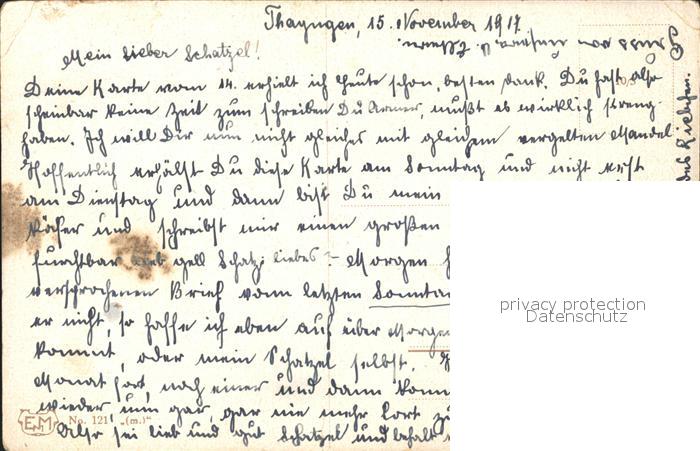 Thayngen, 15. November 1917
Gruss von unserer l. Mama.
Mein lieber Schatzel!
Deine Karte vom 14. erhielt ich heute schon, besten Dank. Du hast also
scheinbar keine Zeit zum schreiben Du Armer, mußt es wirklich streng
haben. Ich will Dir nun nicht gleiches mit gleichem vergelten Mandel
Hoffentlich erhälst Du diese Karte am Sonntag und nicht erst
am Dienstag und dann bist Du mein
Käfer und schreibst mir einen großen
furchtbar lieb gell Schatzi liebes? - Morgen
versprochenen Brief vom letzten Sonntag
er nicht, so hoffe ich eben auf über Morgen
kommt, oder mein Schatzel selbst.
Monat fort, noch einer und dann komm
wieder, nun gar, gar nie mehr fort zu
Also sei lieb und gut Schatzel und behalt
EMM No. 121 „(m.)"
privacy protection
Datenschutz